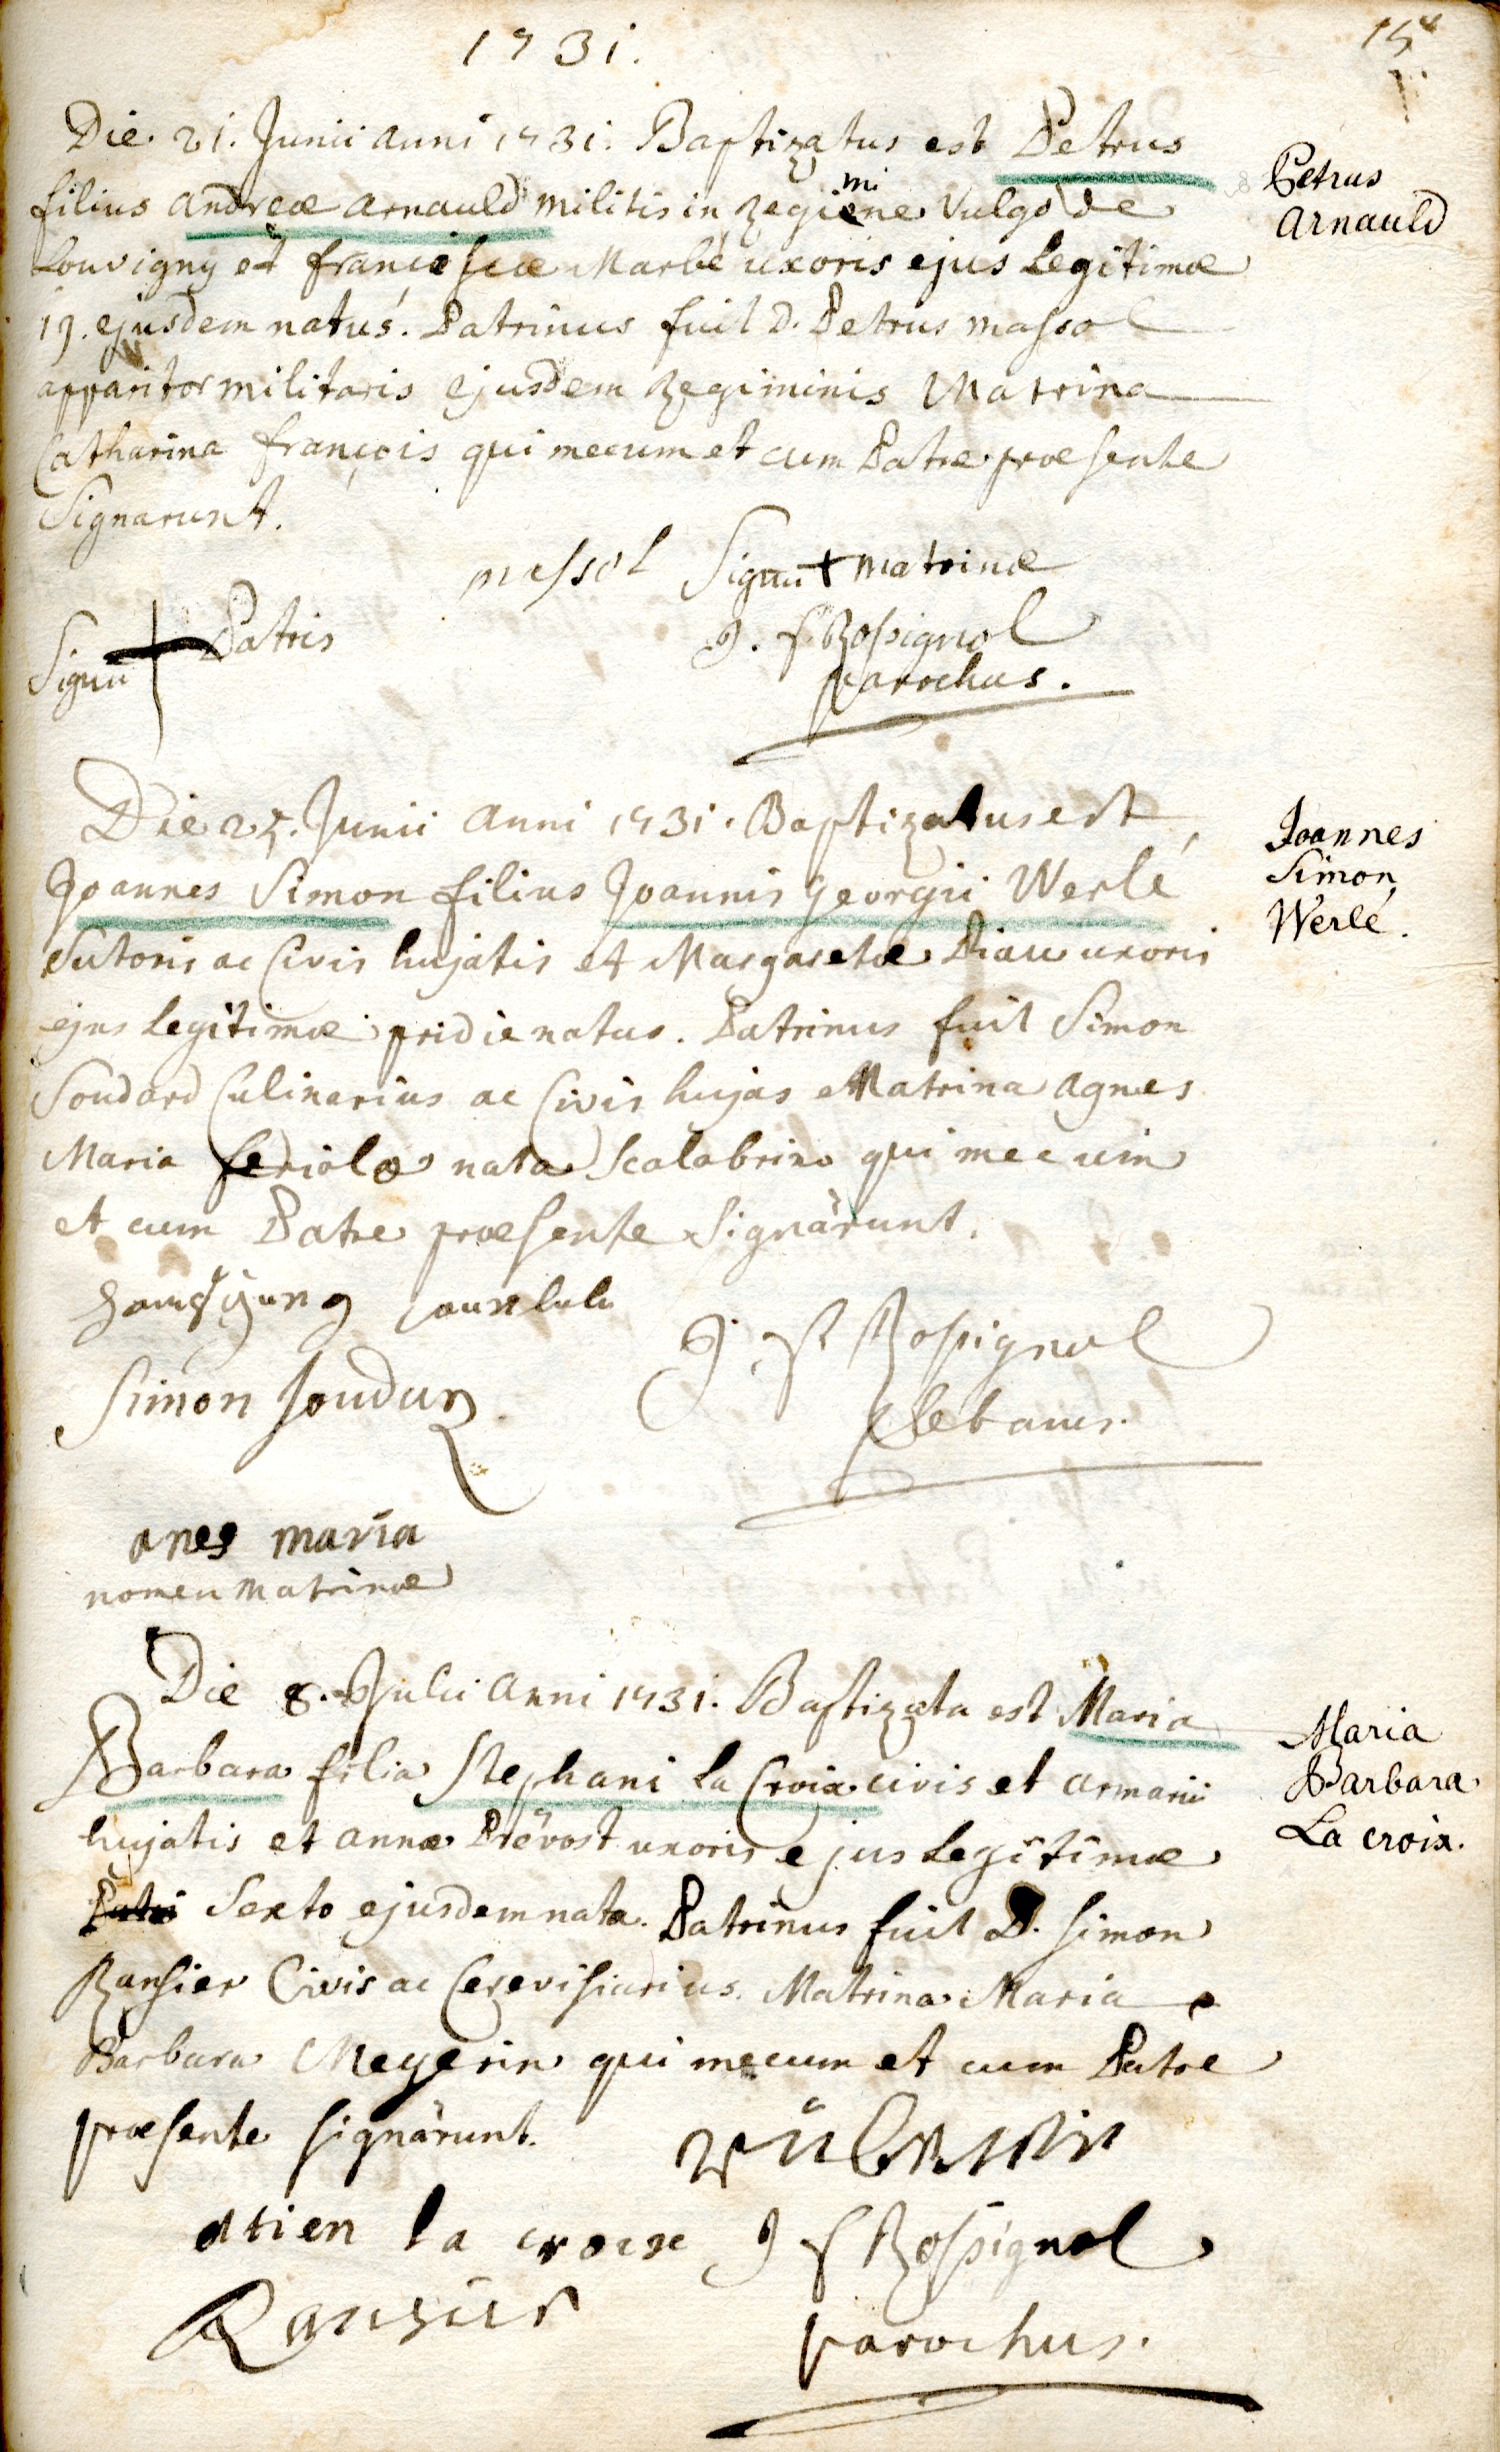 1731.
Die 21. Junii anni 1731. Baptizatus est Petrus
filius andreæ arnauld militis in regimine Vulgo de
Louvigny et franciscæ Marbé uxoris ejus Legitimæ
19. ejusdem natus. Patrinus fuit D. Petrus massol
apparitor militaris ejusdem Regiminis Matrina
Catharina françois qui mecum et cum Patre præsente
Signarunt.
massol Signū + matrinæ
Signū + Patris
J. f Rossignol
parochus.
Petrus
Arnauld
Die 25. Junii anni 1731. Baptizatus est
Joannes Simon filius Joannis Georgii Werlé
Sutoris ac Civis hujatis et Margaretæ Diau uxoris
ejus Legitimæ pridie natus. Patrinus fuit Simon
Soudard Culinarius ac Civis hujas Matrina Agnes
Maria feriola nata Scalabrino qui mecum
et cum Patre præsente Signârunt.
J. f Rossignol
Plebanus.
Simon soudar
anes maria
nomen matrinæ
Joannes
Simon
Werlé.
Die 8. Julii anni 1731. Baptizata est Maria
Barbara filia Stephani La Croix civis et armarii
hujatis et annæ Prévost uxoris ejus Legitimæ
Sexto ejusdem nata. Patrinus fuit D. Simon
Ransier Civis ac Cerevisiarius. Matrina Maria
Barbara Meyerin qui mecum et cum Patre
præsente signârunt.
etien la croix J f Rossignol
parochus.
Maria
Barbara
La croix.